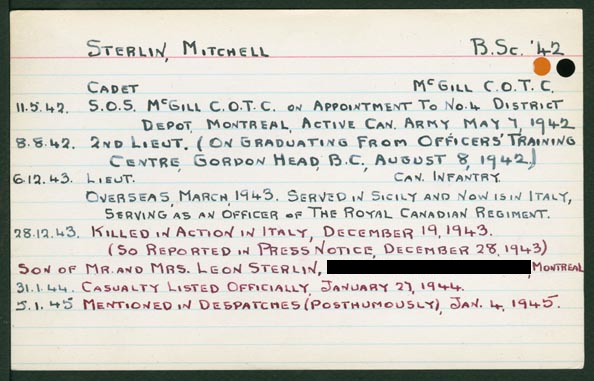 STERLIN, MITCHELL B.Sc. '42
CADET McGILL C.O.T.C.
11.5.42. S.O.S. McGILL C.O.T.C. ON APPOINTMENT TO NO.4 DISTRICT
DEPOT, MONTREAL, ACTIVE CAN. ARMY MAY 7, 1942
8.8.42. 2ND LIEUT. (ON GRADUATING FROM OFFICERS' TRAINING
CENTRE, GORDON HEAD, B.C., AUGUST 8, 1942)
6.12.43. LIEUT. CAN. INFANTRY.
OVERSEAS, MARCH, 1943. SERVED IN SICILY AND NOW IS IN ITALY,
SERVING AS AN OFFICER OF THE ROYAL CANADIAN REGIMENT.
28.12.43. KILLED IN ACTION IN ITALY, DECEMBER 19, 1943.
(SO REPORTED IN PRESS NOTICE, DECEMBER 28, 1943)
SON OF MR. AND MRS. LEON STERLIN, , MONTREAL
31.1.44. CASUALTY LISTED OFFICIALLY, JANUARY 27, 1944.
5.1.45 MENTIONED IN DESPATCHES (POSTHUMOUSLY), JAN. 4, 1945.